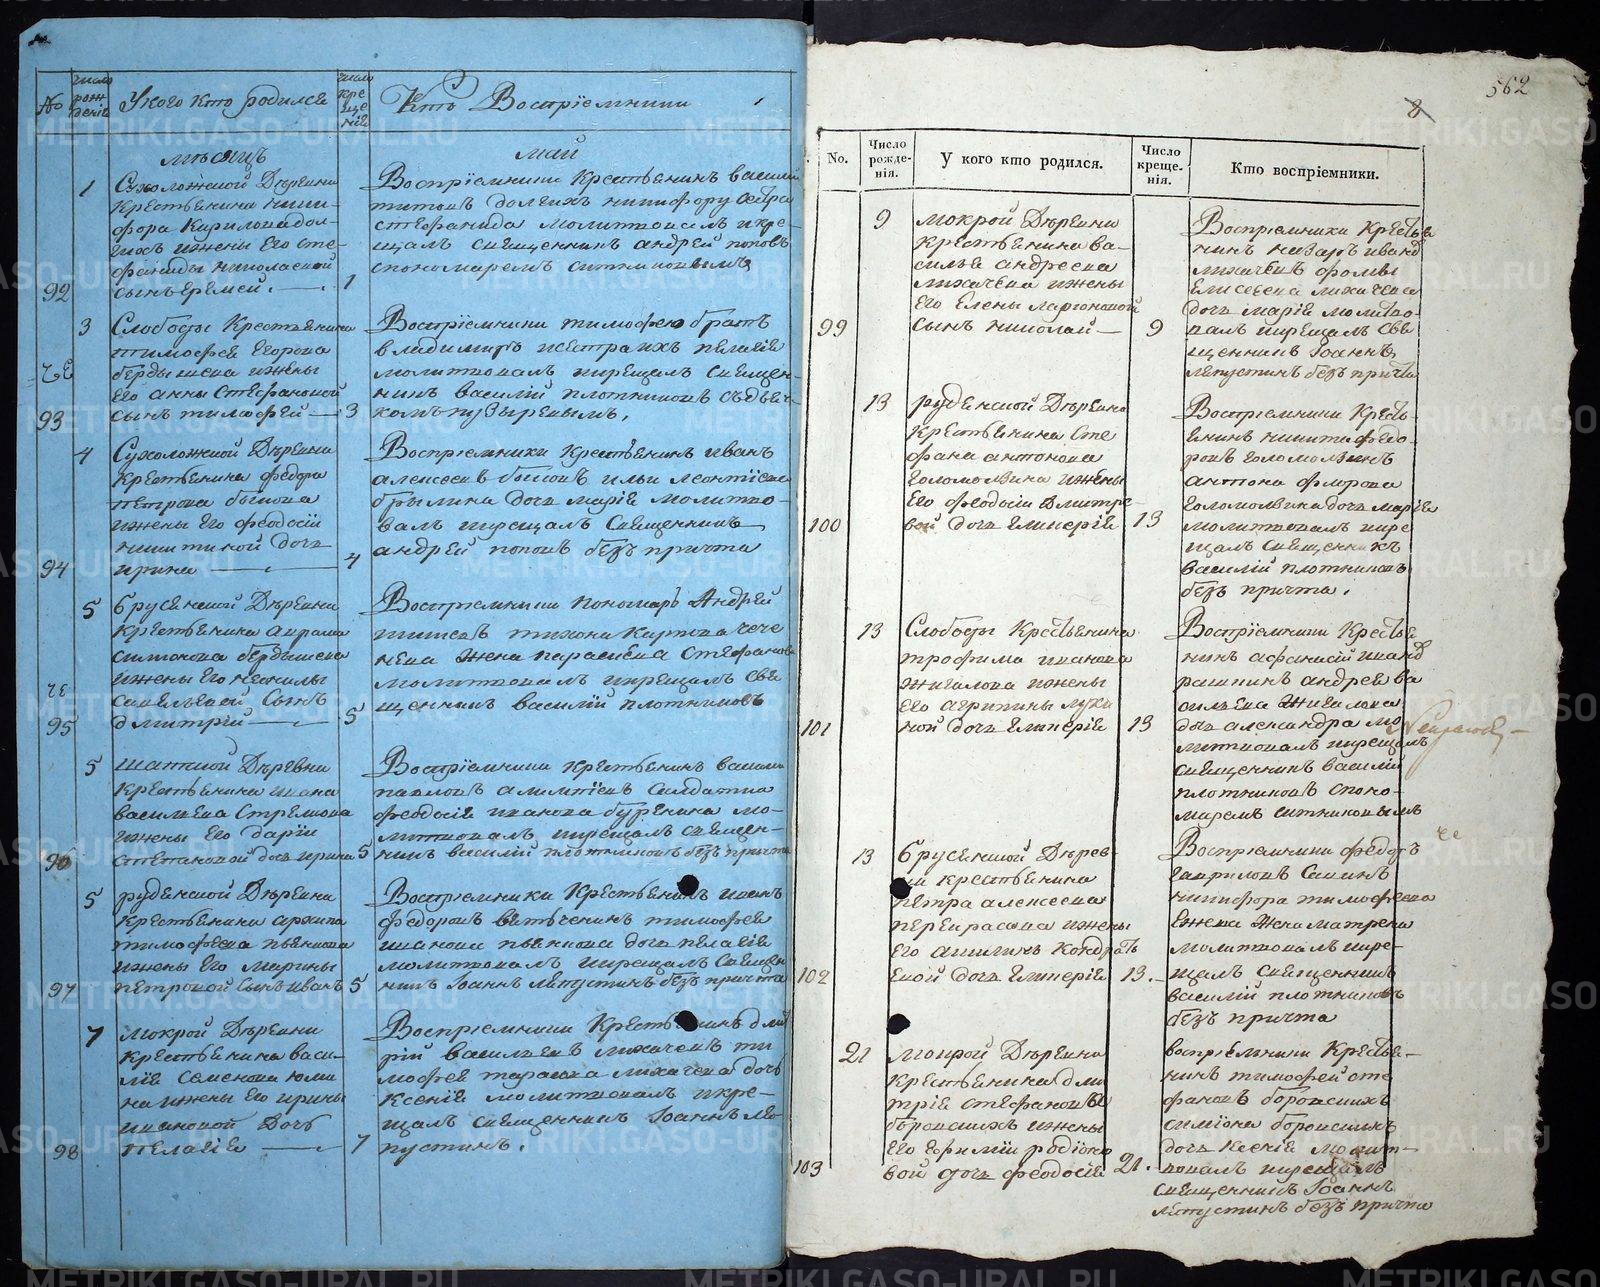 №
число рожденiя
У кого кто родился
число крещенiя
Кто Воспрiемники
мѣсяцъ
май
92
1
Сухоложской Деревни
Крестьянина Ники-
фора Кирилова дол-
гихъ и жены его Сте-
фаниды николаевой
сынъ еремей.
1
Воспрiемники Крестьянинъ васили
титовъ долгихъ никифору сестра
стефанида молитвовалъ и кре-
щалъ священникъ андрей поповъ
спономаремъ ситниковымъ
93
3
Слободы Крестьянина
тимофея Егорова
бердышева и жены
Его анны Стефановой
сынъ тимофей
3
Воспрiемники тимофею братъ
владимиръ и сестра ихъ пелагiя
молитвовалъ и крещалъ священ-
никъ василiй плотниковъ съ дьяч-
комъ пузыревымъ,
94
4
Сухоложской Деревни
Крестьянина федора
петрова быкова
и жены Его феодосiи
никитиной дочь
ирина
4
Воспрiемники Крестьянинъ иванъ
алексеевъ быковъ ильи леонтiева
брылина дочь марiя молитво-
валъ и крещалъ Священникъ
андрей поповъ безъ причта
95
5
брусянской Деревни
Крестьянина аврама
симонова бердышева
и жены Его
савельевой Сынъ
дмитрiй
5
Воспрiемники пономарь Андрей
тихона Карпова чече
нева жена параскева Стефанова
молитвовалъ и крещалъ свя
щенникъ василiй плотниковъ
96
5
шатской Деревни
Крестьянина ивана
васильева Стрелкова
и жены Его дарiи
степановой дочь ирина
5
Воспрiемники Крестьянинъ василiй
павловъ алимпiевъ Салдатка
феодосiя иванова буренина мо-
литвовалъ и крещалъ священ-
никъ василiй плотниковъ безъ причта
97
5
руденской Деревни
Крестьянина архипа
тимофеева пьянкова
и жены Его марины
петровой Сынъ иванъ
5
Воспрiемники Крестьянинъ иванъ
федоровъ тимофея
иванова пьянкова дочь пелагiя
молитвовалъ и крещалъ Священ
никъ Iоаннъ ляпустинъ безъ причта
98
7
мокрой Деревни
Крестьянина васи-
лiя Семенова юми
на и жены Его ирины
ивановой Дочь
пелагiя
7
Воспрiемники Крестьянинъ дмит
рiй васильевъ лихачевъ ти
мофея тарасова лихачева дочь
Ксенiя молитвовалъ и кре-
щалъ священникъ Iоаннъ ля
пустинъ.
562
8
No.
Число рожде-нiя.
У кого кто родился.
Число креще-нiя.
Кто воспрiемники.
99
9
мокрой Деревни
Крестьянина ва-
силья андреева
лихачева и жены
Его Елены ларионовой
сынъ николай
9
Воспрiемники Крестья
нинъ назаръ иванов
лихачевъ фомы
Елисеева лихачева
дочь марiя молитво-
валъ и крещалъ свя
щенникъ Iоаннъ
ляпустинъ безъ причта
100
13
руденской Деревни
Крестьянина Сте
фана антонова
голомолзина и жены
Его феодосiи дмитрi
вой дочь гликерiя
13
Воспрiемники Кресть-
янинъ никита федо-
ровъ голомолзинъ
антона флорова
голомолзина дочь марiя
молитвовалъ и кре
щалъ священникъ
василiй плотниковъ
безъ причта.
101
13
Слободы Крестьянина
трофима иванова
жигалова и жены
Его агрипины луки
ной дочь гликерiя
13
Воспрiемники Крестья
нинъ афанасiй иванов
рашкинъ андрея ва
сильева жигалова
дочь александра мо
литвовалъ и крещалъ
священникъ василiй
плотниковъ споно-
маремъ ситниковымъ
102
13
брусянской Дерев-
ни крестьянина
петра алексеева
перекрасова и жены
Его Кондрать
евой дочь гликерiя
13.
Воспрiемники федоръ
гавриловъ Савинъ
никифора тимофеева
Ежева жена матрена
молитвовалъ и кре-
щалъ священникъ
василiй плотниковъ
безъ причта
103
21
мокрой Деревни
Крестьянина дми
трiя стефанова
боровскихъ и жены
Его Ефимiи родiоно
вой дочь феодосiя
21.
воспрiемники Крестья-
нинъ тимофей сте
фановъ боровскихъ
симiона боровскихъ
дочь Ксенiя молит-
вовалъ и крещалъ
священникъ Iоаннъ
ляпустинъ безъ причта
METRIKI.GASO-URAL.RU